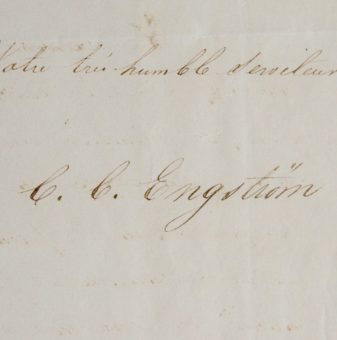 Votre très humble Serviteur
C. C. Engström